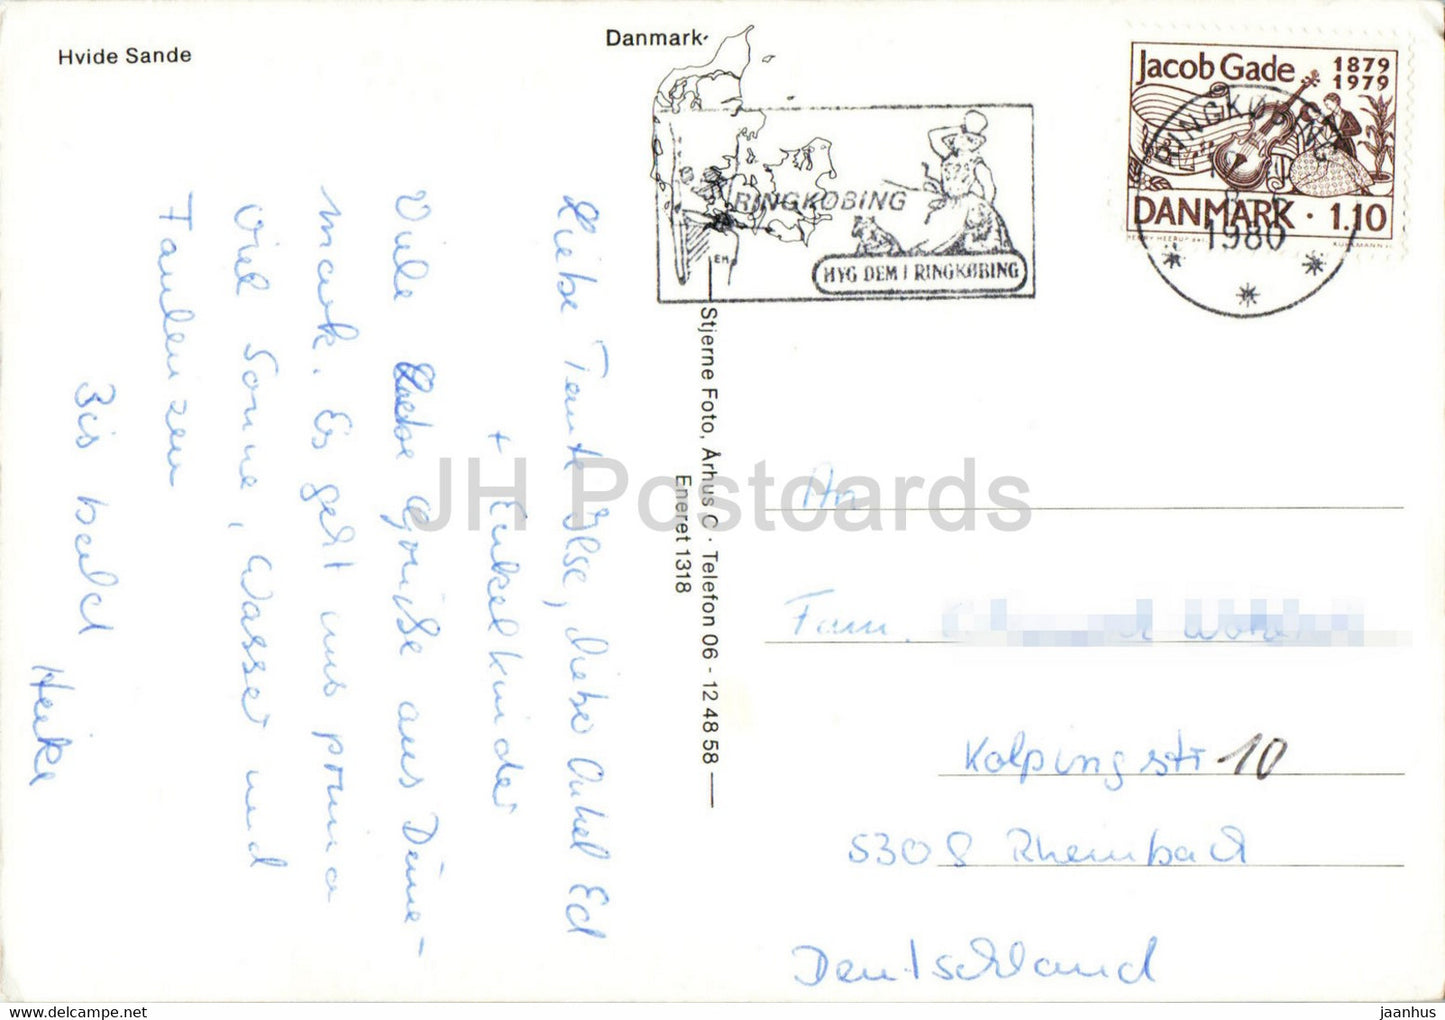 Hvide Sande
Danmark
Jacob Gade 1879
1979
DANMARK · 1.10
RINGKØBING
1980
RINGKØBING
HYG DEM I RINGKØBING
EH
Stjerne Foto, Århus C · Telefon 06 - 12 48 58
Eneret 1318
Liebe Tante Ilse, lieber Onkel Ed
+ Enkelkinder
Viele Grüße aus Däne-
mark. Es geht uns prima
Viel Sonne, Wasser und
Faulenzen
Bis bald
Heike
An
Fam.
Kolpingstr 10
5308 Rheinbach
Deutschland
JH Postcards
https://www.delcampe.net
jaanhus